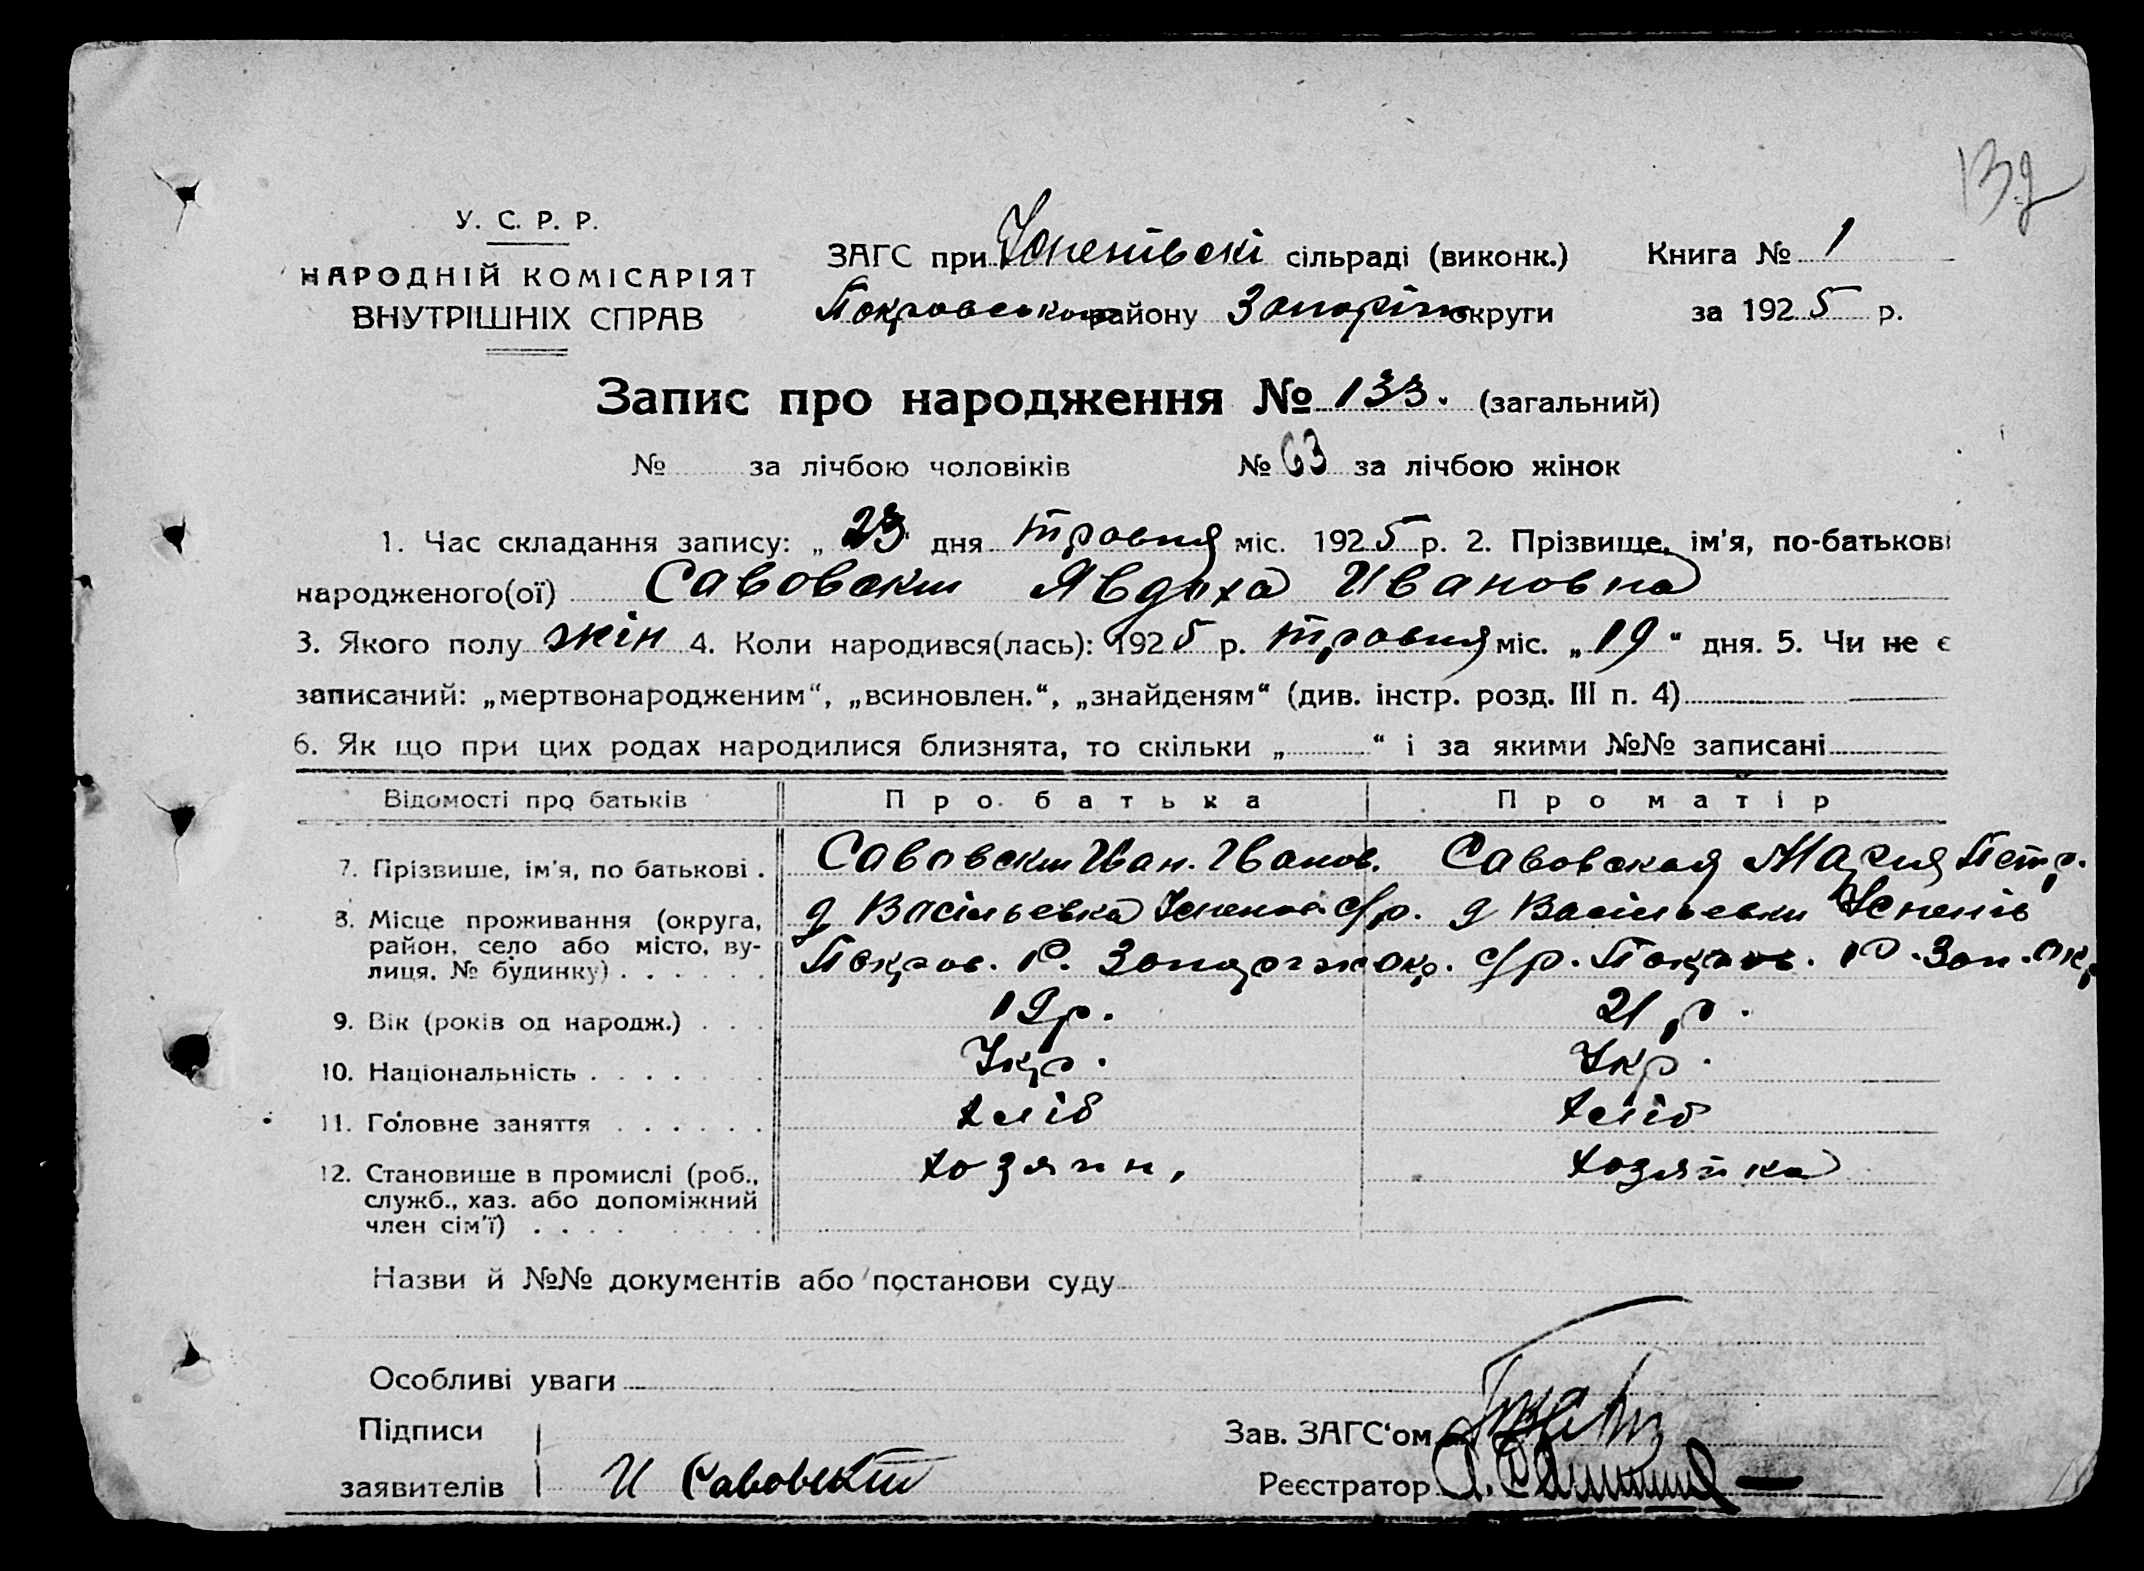 132
У. С. Р. Р.
НАРОДНІЙ КОМІСАРІЯТ
ВНУТРІШНІХ СПРАВ
ЗАГС при Успенівскі сільраді (виконк.) Книга № 1
Покровського району Запоріж округи за 1925 р.
Запис про народження № 133. (загальний)
№ за лічбою чоловіків № 63 за лічбою жінок
1. Час складання запису: „ 23 дня травня міс. 1925 р. 2. Прізвище, ім'я, по-батькові
народженого(ої) Савовски Явдоха Ивановна
3. Якого полу жін 4. Коли народився(лась): 1925 р. травня міс. „19“ дня. 5. Чи не є
записаний: „мертвонародженим“, „всиновлен.“, „знайденям“ (див. інстр. розд. III п. 4)
6. Як що при цих родах народилися близнята, то скільки „ “ і за якими №№ записані
Відомості про батьків Про батька Про матір
7. Прізвише, ім'я, по батькові . Савовски Иван. Иванов. Савовская Мария Петр.
8. Місце проживання (округа, район, село або місто, вулиця, № будинку) . . . . . .
д Васільевка Успенов с/р. д Васільевки Успенів
Покров. Р. Запорож окр. с/р. Покров. Р. Зап. Окр
9. Вік (років од народж.) . . . 19р. 21 р.
10. Національність . . . . . . . Укр. Укр.
11. Головне заняття . . . . . . хліб хліб
12. Становише в промислі (роб., служб., хаз. або допоміжний член сім'ї) . . . . . . . .
хозяин, хозяйка
Назви й №№ документів або постанови суду
Особливі уваги
Підписи Зав. ЗАГС'ом
заявителів И Савовский Реєстратор